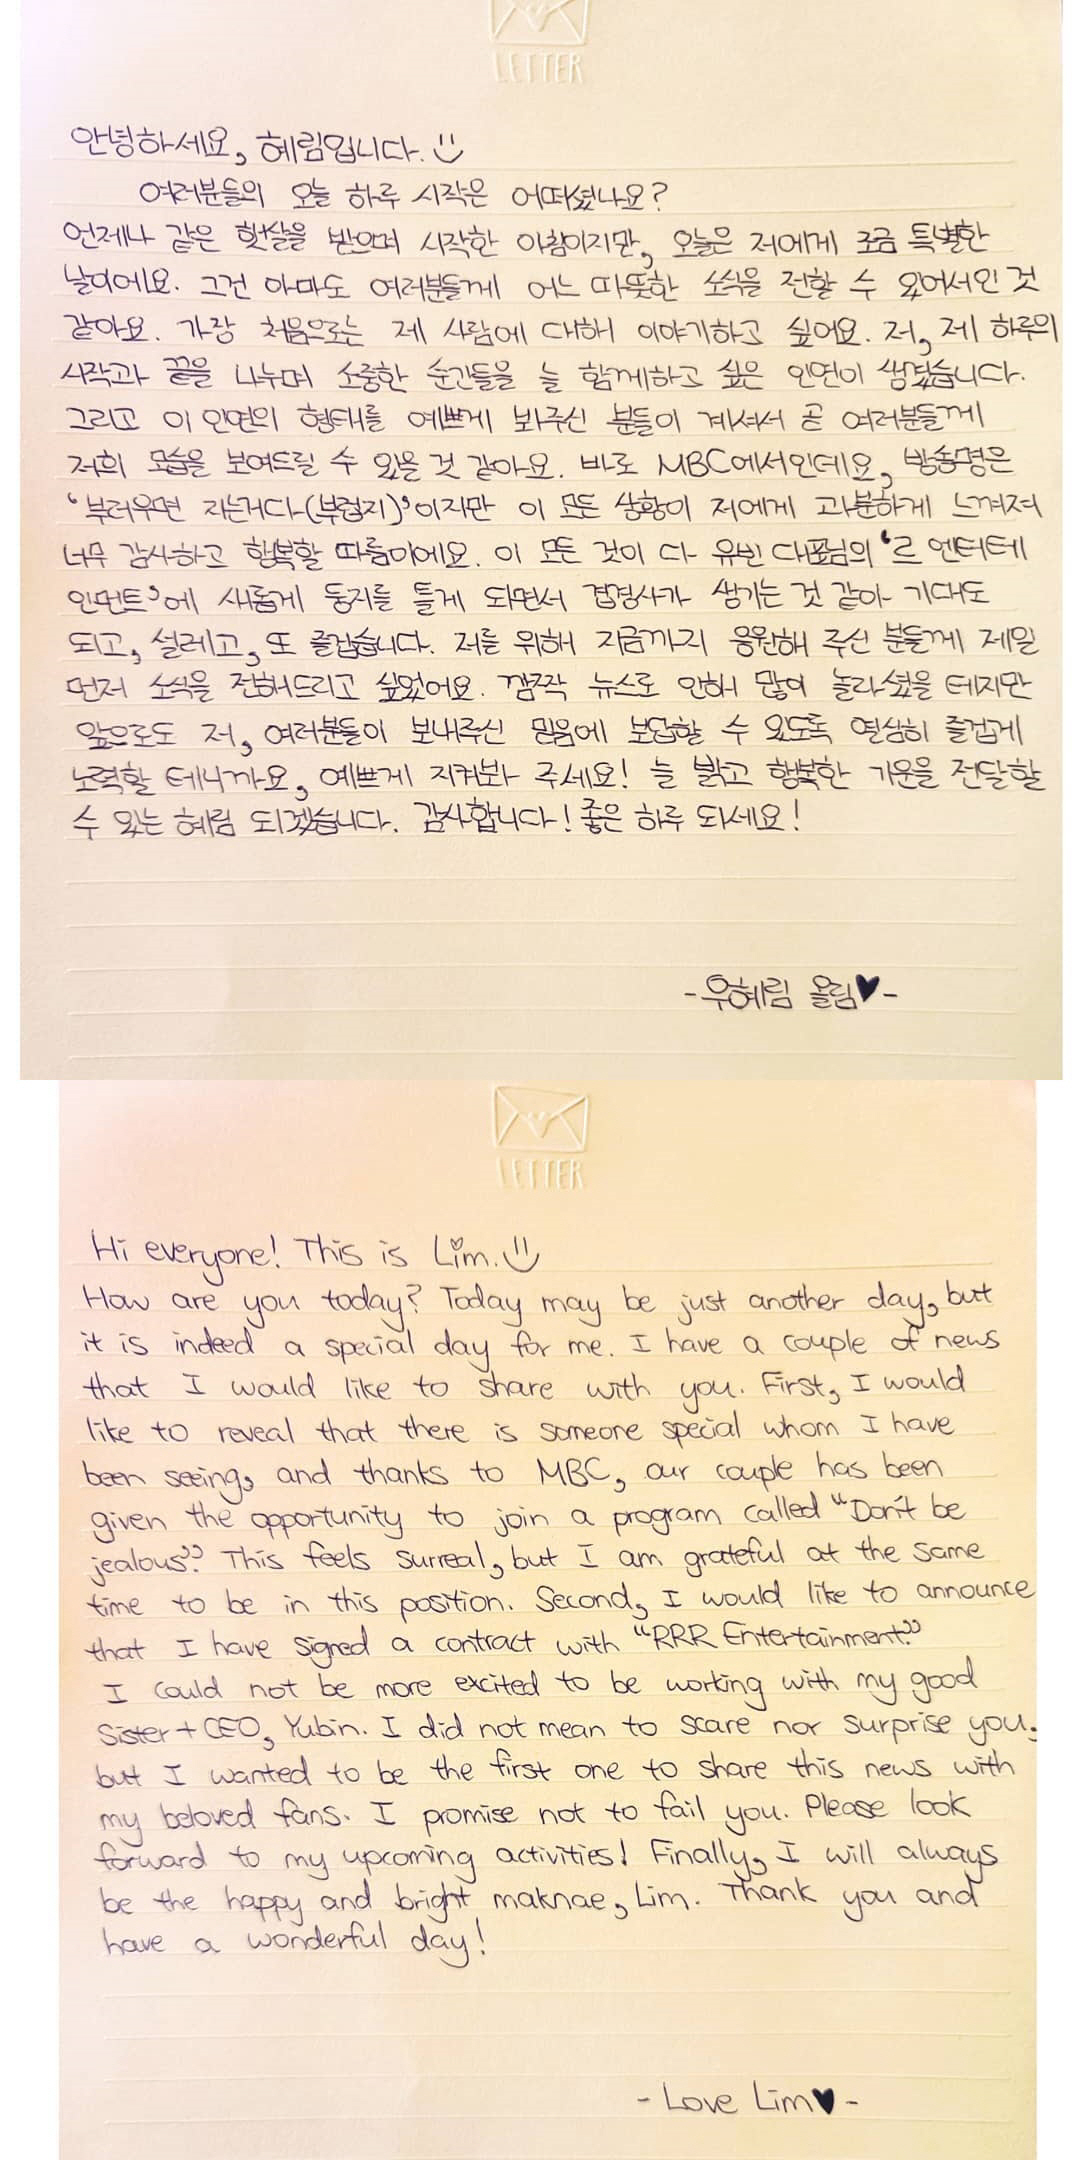 LETTER
안녕하세요, 혜림입니다.
여러분들의 오늘 하루 시작은 어떠셨나요?
언제나 같은 햇살을 받으며 시작한 아침이지만, 오늘은 저에게 조금 특별한
날이에요. 그건 아마도 여러분들께 어느 따뜻한 소식을 전할 수 있어서인 것
같아요. 가장 처음으로는 제 사람에 대해 이야기하고 싶어요. 저, 제 하루의
시작과 끝을 나누며 소중한 순간들을 늘 함께하고 싶은 인연이 생겼습니다.
그리고 이 인연의 형태를 예쁘게 봐주신 분들이 계셔서 곧 여러분들께
저희 모습을 보여드릴 수 있을 것 같아요. 바로 MBC에서인데요, 방송명은
‘부러우면 지는거다(부럽지)’이지만 이 모든 상황이 저에게 과분하게 느껴져
너무 감사하고 행복할 따름이에요. 이 모든 것이 다 유빈 대표님의 ‘르 엔터테
인먼트’에 새롭게 둥지를 틀게 되면서 겹경사가 생기는 것 같아 기대도
되고, 설레고, 또 즐겁습니다. 저를 위해 지금까지 응원해 주신 분들께 제일
먼저 소식을 전해드리고 싶었어요. 깜짝 뉴스로 인해 많이 놀라셨을 테지만
앞으로도 저, 여러분들이 보내주신 믿음에 보답할 수 있도록 열심히 즐겁게
노력할 테니까요, 예쁘게 지켜봐 주세요! 늘 밝고 행복한 기운을 전달할
수 있는 혜림 되겠습니다. 감사합니다! 좋은 하루 되세요!
-우혜림 올림♥-
LETTER
Hi everyone! This is Lim.
How are you today? Today may be just another day, but
it is indeed a special day for me. I have a couple of news
that I would like to share with you. First, I would
like to reveal that there is someone special whom I have
been seeing, and thanks to MBC, our couple has been
given the opportunity to join a program called “Don't be
jealous”. This feels surreal, but I am grateful at the same
time to be in this position. Second, I would like to announce
that I have signed a contract with “RRR Entertainment.”
I could not be more excited to be working with my good
Sister + CEO, Yubin. I did not mean to scare nor surprise you,
but I wanted to be the first one to share this news with
my beloved fans. I promise not to fail you. Please look
forward to my upcoming activities! Finally, I will always
be the happy and bright maknae, Lim. Thank you and
have a wonderful day!
- Love Lim♥ -